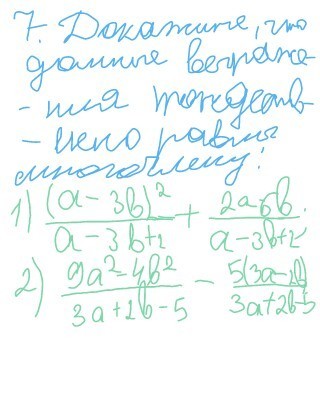 7. Докажите, что
данные выраже-
- ния тождеств-
- енно равны
многочлену:
1) (a - 3b)² / (a - 3b + 2) + (2a - 6b) / (a - 3b + 2)
2) (9a² - 4b²) / (3a + 2b - 5) - 5(3a - 2b) / (3a + 2b - 5)